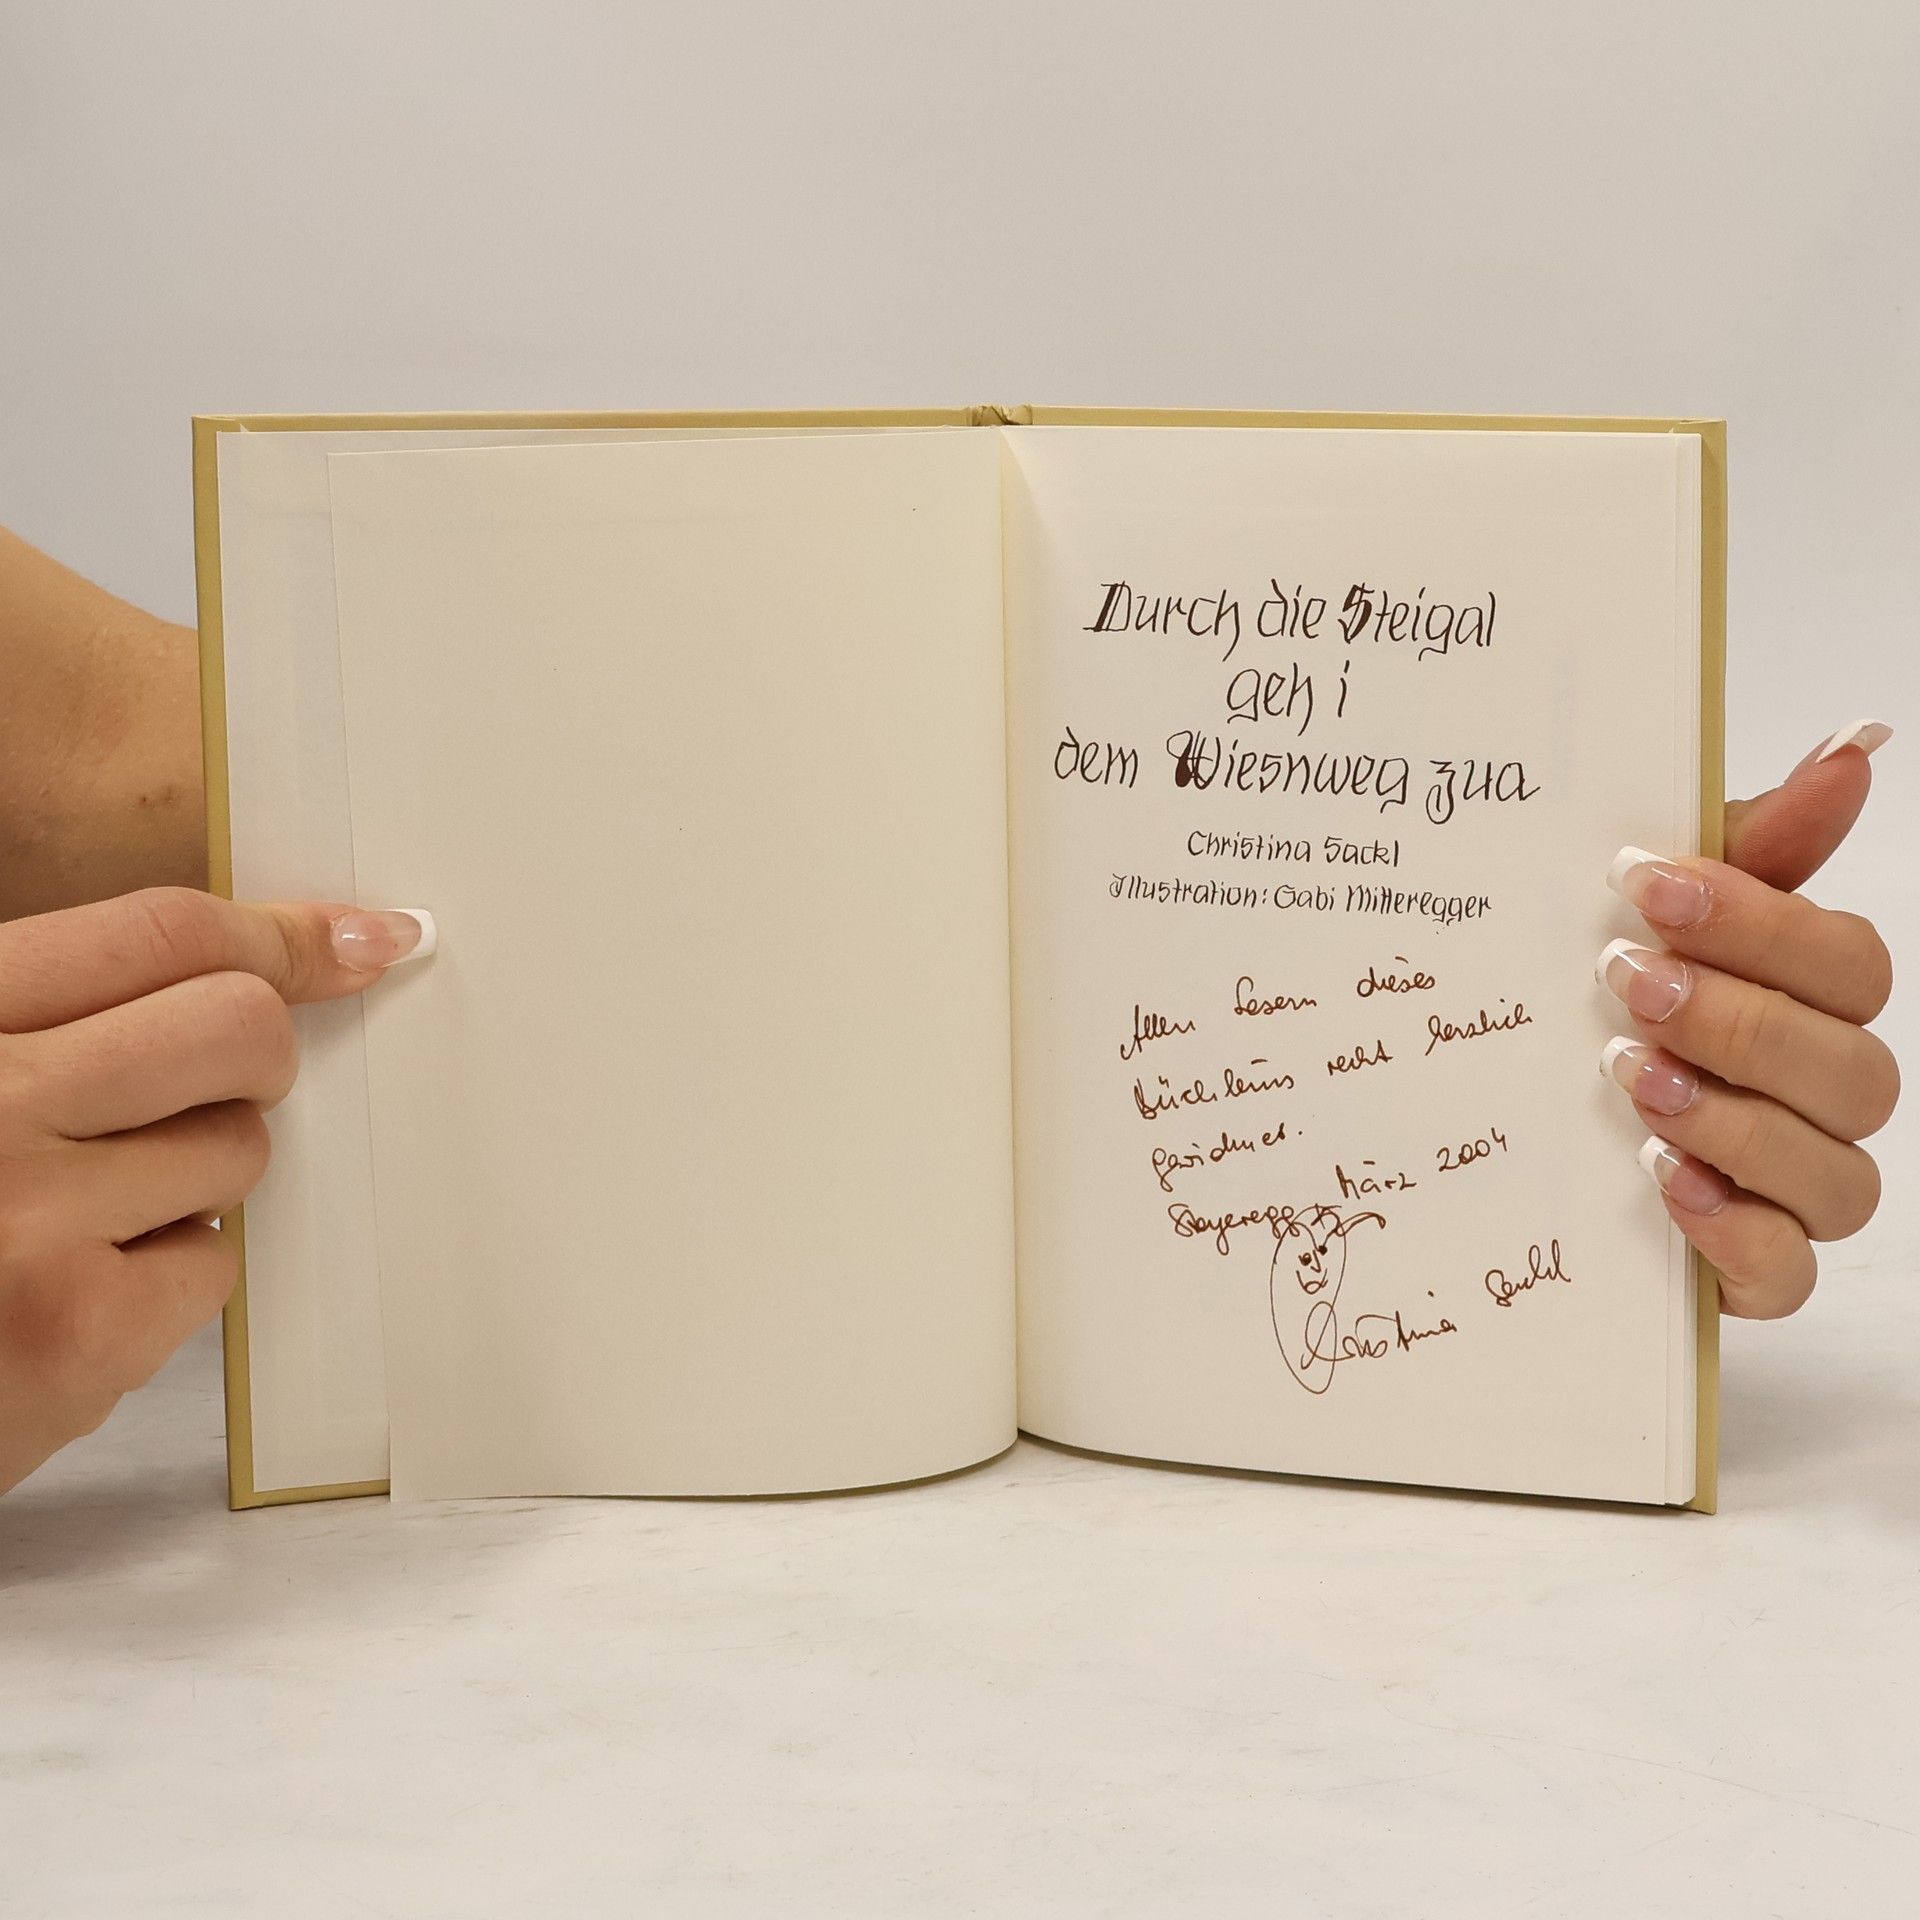 Durch die Steigal
geh i
dem Wiesnweg zua
Christina Sackl
Illustration: Gabi Mitteregger
Allen Lesern dieses
Büchleins recht herzlich
gewidmet.
Steyeregg März 2004
Christina Sackl